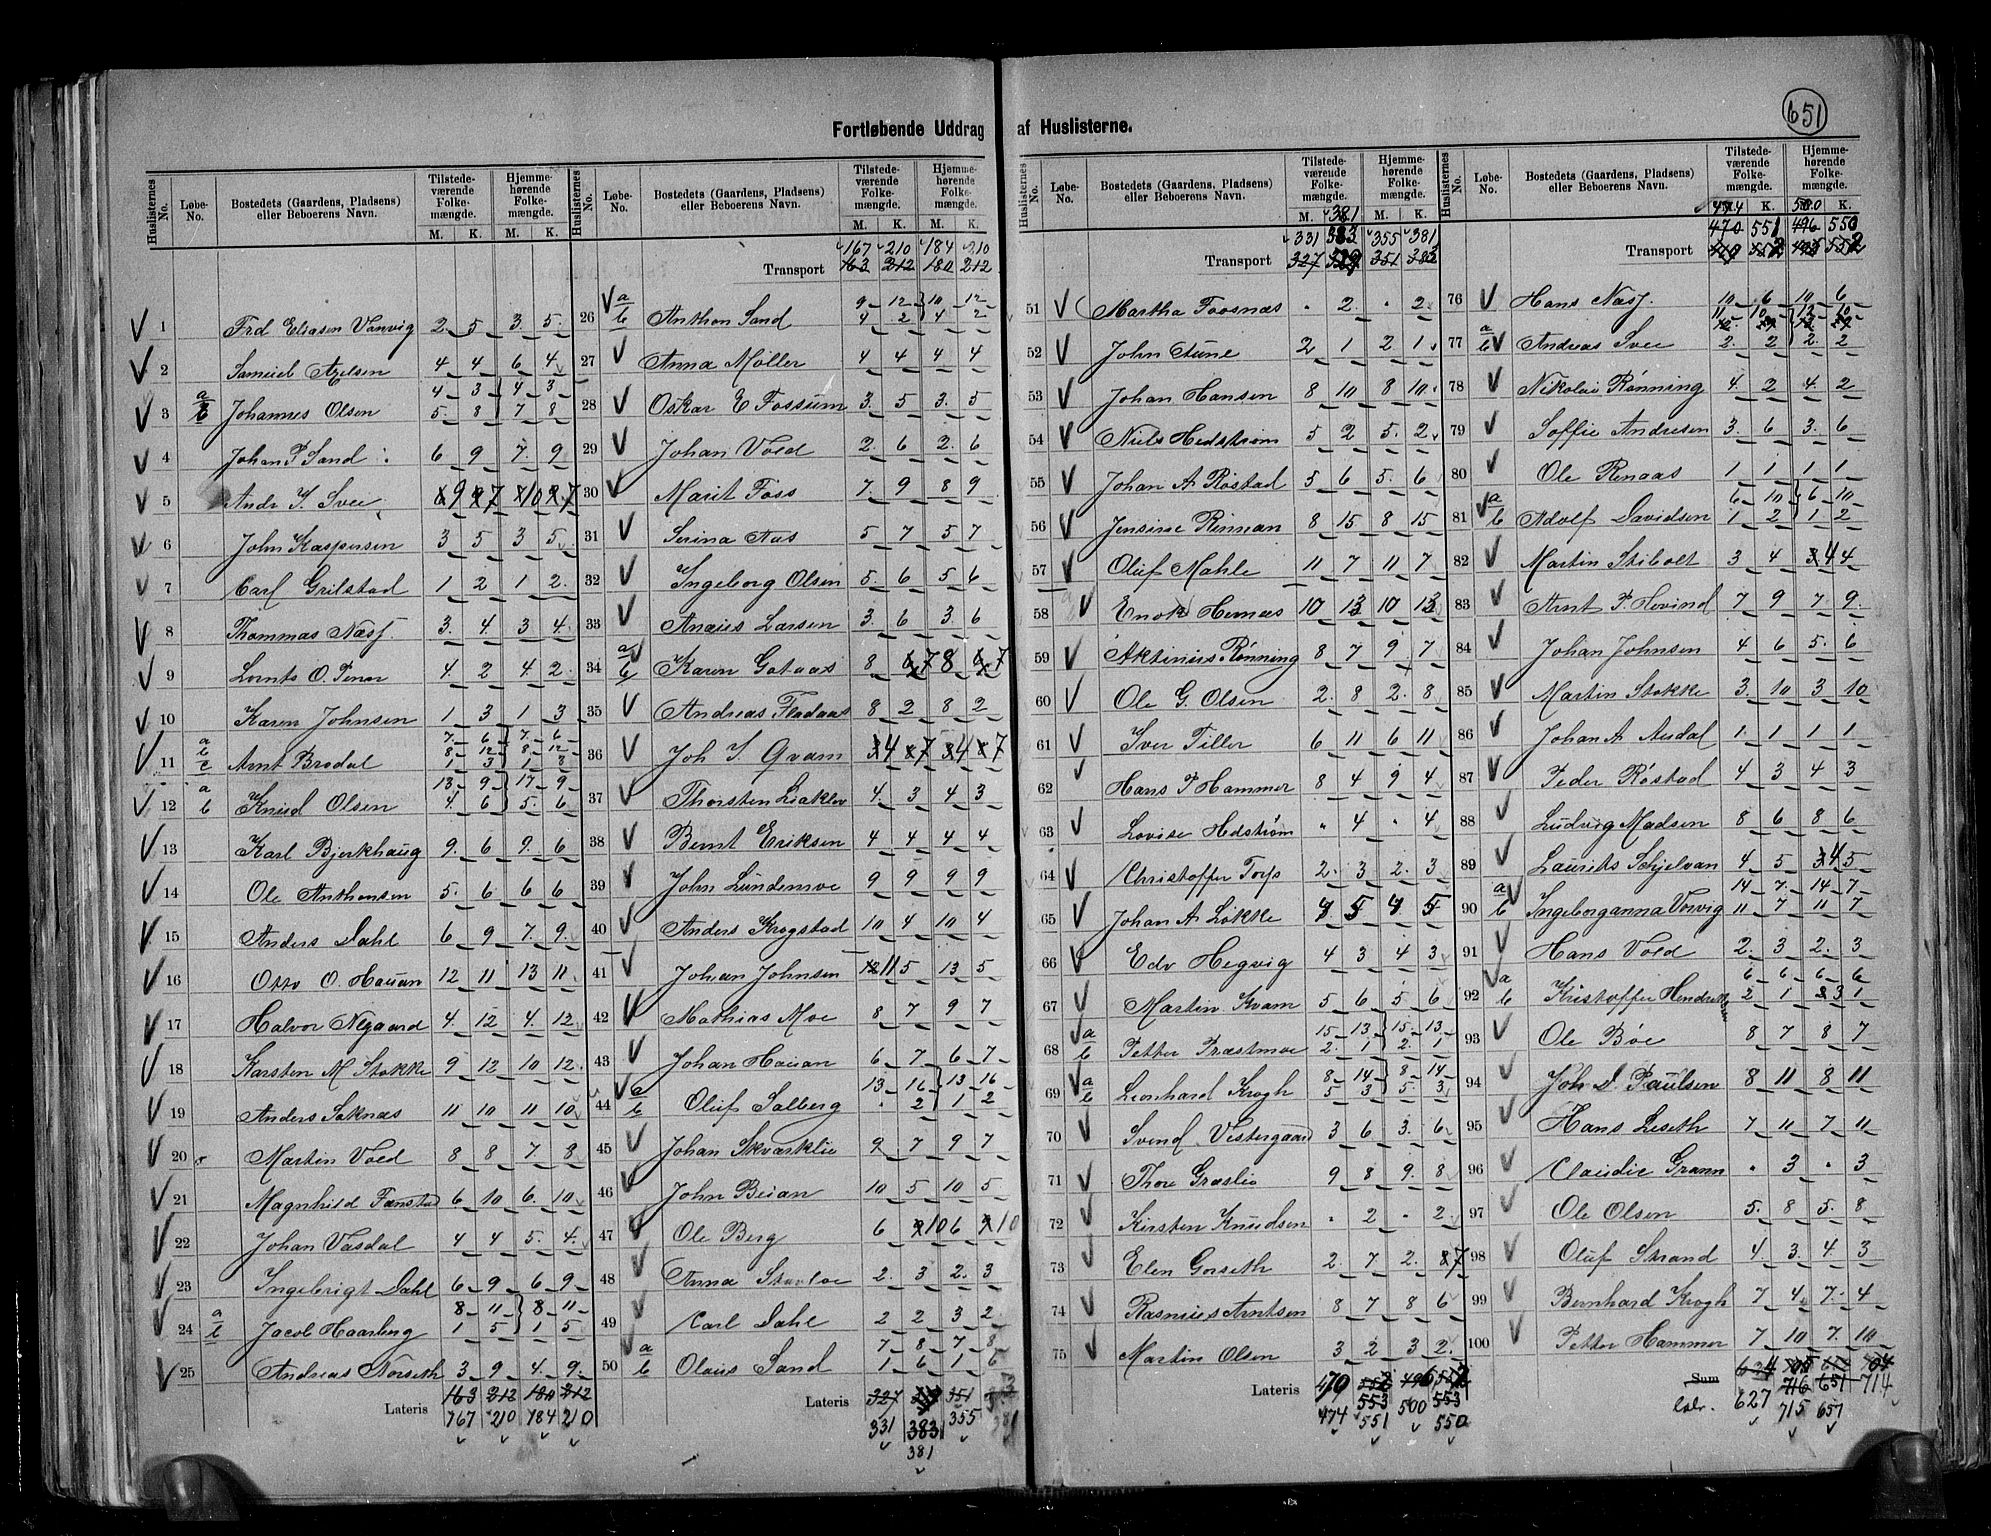 651
Fortløbende Uddrag af Huslisterne.
Huslisternes No. Løbe-No. Bostedets (Gaardens, Pladsens) eller Beboerens Navn. Tilstedeværende Folkemængde. Hjemmehørende Folkemængde.
M. K. M. K.
1 Frd Eliasen Vanvig 2 5 3 5
2 Samuel Axelsen 4 4 6 4
a 4 3 4 3
3 b Johannes Olsen 5 8 7 8
4 Johan P Sand 6 9 7 9
5 Andr. J. Svee 9 7 10 7
6 John Kaspersen 3 5 3 5
7 Carl Grilstad 1 2 1 2
8 Thommas Næss 3 4 3 4
9 Lornts O. 4 2 4 2
10 Karen Johnsen 1 3 1 3
a 7 6 7 6
b 8 12 8 12
11 c Arnt Brodal 1 3 1 3
a 13 9 17 9
12 b Knud Olsen 4 6 5 6
13 Karl Bjerkhaug 9 6 9 6
14 Ole Anthonsen 5 6 6 6
15 Anders Dahl 6 9 7 9
16 Otto O. Hauan 12 11 13 11
17 Halvor Negaard 4 12 4 12
18 Karsten M Stokke 9 12 10 12
19 Anders Saknæs 11 10 11 10
20 Martin Vold 8 8 7 8
21 Magnhild Fanstad 6 10 6 10
22 Johan Vasdal 4 4 5 4
23 Ingebrigt Dahl 6 9 6 9
a 8 11 8 11
24 b Jacob Haarberg 1 5 1 5
25 Andreas Norseth 3 9 4 9
Lateris 163 212 180 212
167 210 184 210
Huslisternes No. Løbe-No. Bostedets (Gaardens, Pladsens) eller Beboerens Navn. Tilstedeværende Folkemængde. Hjemmehørende Folkemængde.
M. K. M. K.
167 210 184 210
Transport 163 212 180 212
a 9 12 10 12
26 b Anthon Sand 4 2 4 2
27 Anna Møller 4 4 4 4
28 Oskar E Fossum 3 5 3 5
29 Johan Vold 2 6 2 6
30 Marit Foss 7 9 8 9
31 Serina Aas 5 7 5 7
32 Ingeborg Olsen 5 6 5 6
33 Anæus Larsen 3 6 3 6
34 a b Karen Gataas 8 7 8 7
35 Andreas Fladaas 8 2 8 2
36 Joh J. Qvam 4 7 4 7
37 Thorsten 4 3 4 3
38 Bernt Eriksen 4 4 4 4
39 John Lundemoe 9 9 9 9
40 Anders Krogstad 10 4 10 4
41 Johan Johnsen 12 11 5 13 5
42 Mathias Moe 8 7 9 7
43 Johan Hauan 6 7 6 7
a 13 16 13 16
44 b Oluf Salberg 2 1 2
45 Johan Skvarklie 9 7 9 7
46 John Beian 10 5 10 5
47 Ole Berg 6 10 6 10
48 Anna 2 3 2 3
49 Carl Dahl 2 2 3 2
a 7 8 7 8
50 b Olaus Sand 1 6 1 6
Lateris 327 351
331 383 355 381
381
Huslisternes No. Løbe-No. Bostedets (Gaardens, Pladsens) eller Beboerens Navn. Tilstedeværende Folkemængde. Hjemmehørende Folkemængde.
M. 381 M. K.
331 383 355 381
Transport 327 351 383
51 Martha Foosnæs " 2 " 2
52 John Tune 2 1 2 1
53 Johan Hansen 8 10 8 10
54 Niels Hedstrøm 5 2 5 2
55 Johan A Røstad 5 6 5 6
56 Jensine Rinnan 8 15 8 15
57 Oluf Mahle 11 7 11 7
58 Enok Hernes 10 10
59 Aktinius Rønning 8 7 9 7
60 Ole G. Olsen 2 8 2 8
61 Iver Tiller 6 11 6 11
62 Hans P Hammer 8 4 9 4
63 Lovise Hedstrøm " 4 " 4
64 Christoffer Torp 2 3 2 3
65 Johan A Løkke 5 5
66 Edv Hegvig 4 3 4 3
67 Martin Kvam 5 6 5 6
a 15 13 15 13
68 b Petter Præstmoe 2 1 2 1
a 8 14 8 14
69 b Leonhard Krogh 5 3 5 3
70 Svend Vestergaard 3 6 3 6
71 Thore Græslie 9 8 9 8
72 Kirsten Knudsen " 2 " 2
73 Elen Gorseth 2 7 2 7
74 Rasmus Arntsen 8 7 8 6
75 Martin Olsen 3 2 3 2
Lateris 470 552 496 552
553 553
474 551 500 550
Huslisternes No. Løbe-No. Bostedets (Gaardens, Pladsens) eller Beboerens Navn. Tilstedeværende Folkemængde. Hjemmehørende Folkemængde.
474 K. 500 K.
470 551 496 550
Transport 552 552
76 Hans Næss 10 6 10 6
a 11 10 12 10
77 b Andreas Svee 2 2 2 2
78 Nikolai Rønning 4 2 4 2
79 Soffie Andresen 3 6 3 6
80 Ole Renaas 1 1 1 1
a 6 10 6 10
81 b Adolf Davidsen 1 2 1 2
82 Martin Stibolt 3 4 3 4 4
83 Arnt P. Hovind 7 9 7 9
84 Johan Johnsen 4 6 5 6
85 Martin Stokke 3 10 3 10
86 Johan A Ausdal 1 1 1 1
87 Peder Røstad 4 3 4 3
88 Ludvig Madsen 8 6 8 6
89 Laurits Schjelvan 4 5 3 4 5
a 14 7 14 7
90 b Ingeborganna Vorvig 11 7 11 7
91 Hans Vold 2 3 2 3
a 6 6 6 6
92 b Kristoffer Hendriksen 2 1 2 3 1
93 Ole Bøe 8 7 8 7
94 Joh D. Paulsen 8 11 8 11
95 Hans Leseth 7 11 7 11
96 Claudie Grann " 3 " 3
97 Ole Olsen 5 8 5 8
98 Oluf Strand 4 3 4 3
99 Bernhard Krogh 7 4 7 4
100 Petter Hammer 7 10 7 10
Sum 704
716 651 714
627 715 657